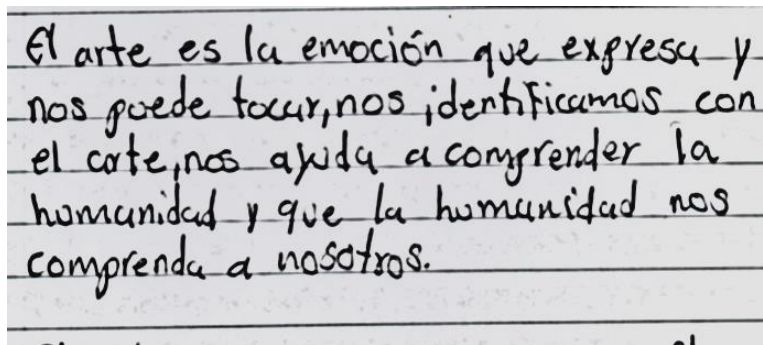 El arte es la emoción que expresa y
nos puede tocar, nos identificamos con
el arte, nos ayuda a comprender la
humanidad y que la humanidad nos
comprenda a nosotros.